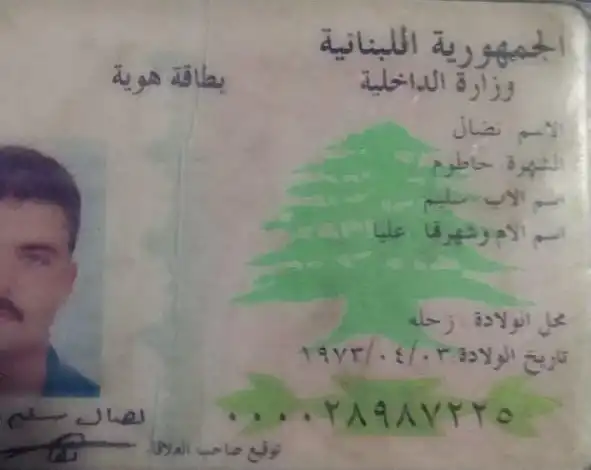 الجمهورية اللبنانية
وزارة الداخلية
بطاقة هوية
الاسم نضال
الشهرة حاطوم
اسم الاب سليم
اسم الام وشهرتها عليا
محل الولادة زحله
تاريخ الولادة ١٩٧٣/٠٤/٠٣
٠٠٠٠٢٨٩٨٧٢٢٥
نضال سليم
توقيع صاحب العلاقة